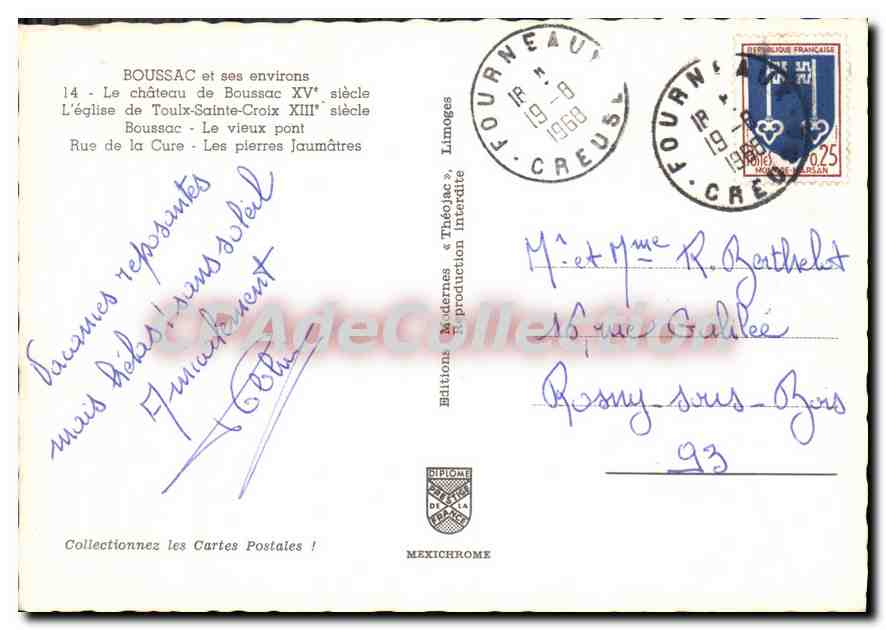 BOUSSAC et ses environs
14 - Le château de Boussac XVe siècle
L'église de Toulx-Sainte-Croix XIIIe siècle
Boussac - Le vieux pont
Rue de la Cure - Les pierres Jaumâtres
Vacances reposantes
mais hélas! sans soleil
Amicalement
Editions Modernes « Théojac », Limoges
Reproduction interdite
FOURNEAUX
18 H
19-8
1968
CREUSE
FOURNEAUX
18 H
19-8
1968
CREUSE
REPUBLIQUE FRANÇAISE
POSTES
0,25
MONT-DE-MARSAN
Mr et Mme R. Berthelot
16, rue Galilée
Rosny-sous-Bois
93
CPAdeCollection
DIPLOME
PRESTIGE
DE LA
FRANCE
MEXICHROME
Collectionnez les Cartes Postales !